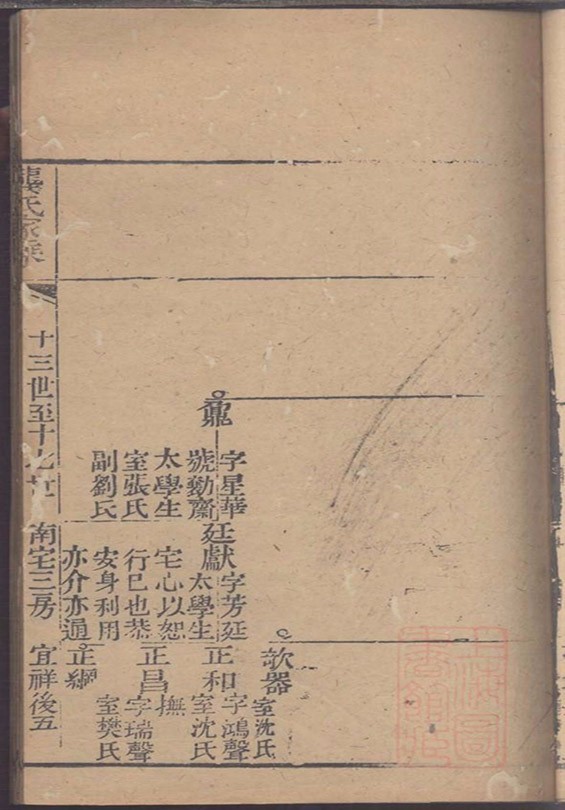 歆器
室沈氏
鼐
字星華
號勤齋
太學生
室張氏
副劉氏
廷獻
字芳廷
太學生
宅心以恕
行已也恭
安身利用
亦介亦通
正和
字鴻聲
室沈氏
正昌
撫
字瑞聲
室樊氏
正綱
龔氏家乘
十三世至十九世
南宅三房
宜祥後五
上海圖書館藏